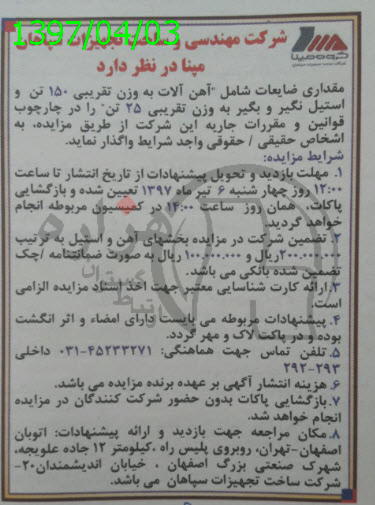 1397/04/03
شرکت مهندسی و ساخت تجهیزات سپاهان
مپنا در نظر دارد
گروه مپنا
مقداری ضایعات شامل "آهن آلات به وزن تقریبی ۱۵۰ تن و
استیل نگیر و بگیر به وزن تقریبی ۲۵ تن" را در چارچوب
قوانین و مقررات جاریه این شرکت از طریق مزایده، به
اشخاص حقیقی / حقوقی واجد شرایط واگذار نماید.
شرایط مزایده:
۱. مهلت بازدید و تحویل پیشنهادات از تاریخ انتشار تا ساعت
۱۲:۰۰ روز چهار شنبه ۶ تیر ماه ۱۳۹۷ تعیین شده و بازگشایی
پاکات، همان روز ساعت ۱۴:۰۰ در کمیسیون مربوطه انجام
خواهد گردید.
۲. تضمین شرکت در مزایده بخشهای آهن و استیل به ترتیب
۲۰۰.۰۰۰.۰۰۰ریال و ۱۰۰.۰۰۰.۰۰۰ ریال به صورت ضمانتنامه /چک
تضمین شده بانکی می باشد.
۳.ارائه کارت شناسایی معتبر جهت اخذ اسناد مزایده الزامی
است.
۴. پیشنهادات مربوطه می بایست دارای امضاء و اثر انگشت
بوده و در پاکت لاک و مهر گردد.
۵. تلفن تماس جهت هماهنگی: ۴۵۲۳۳۲۷۱-۰۳۱ داخلی
۲۹۳-۲۹۲
۶. هزینه انتشار آگهی بر عهده برنده مزایده می باشد.
۷.بازگشایی پاکات بدون حضور شرکت کنندگان در مزایده
انجام خواهد شد.
۸.مکان مراجعه جهت بازدید و ارائه پیشنهادات: اتوبان
اصفهان-تهران، روبروی پلیس راه ،کیلومتر ۱۲ جاده علویجه،
شهرک صنعتی بزرگ اصفهان ، خیابان اندیشمندان۲۰-
شرکت ساخت تجهیزات سپاهان می باشد.